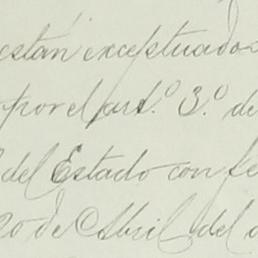 están exceptuados
por el art.º 3.º de
del Estado con fe
20 de Abril del a